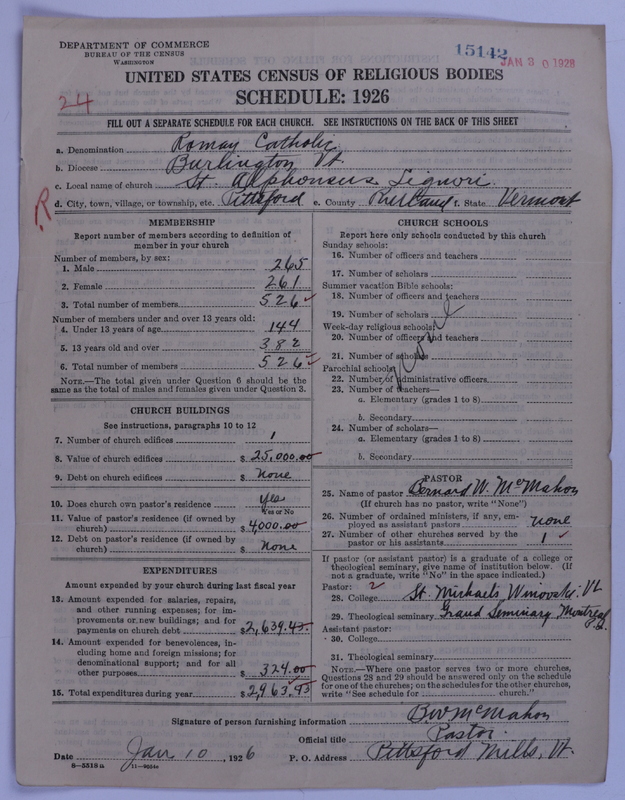 DEPARTMENT OF COMMERCE
BUREAU OF THE CENSUS
WASHINGTON
15142
JAN 30 1928
UNITED STATES CENSUS OF RELIGIOUS BODIES
SCHEDULE: 1926
24
FILL OUT A SEPARATE SCHEDULE FOR EACH CHURCH. SEE INSTRUCTIONS ON THE BACK OF THIS SHEET
a. Denomination Roman Catholic
b. Diocese Burlington Vt.
c. Local name of church St. Alphonsus Liguori.
R
d. City, town, village, or township, etc. Pittsford e. County Rutland f. State Vermont
MEMBERSHIP
Report number of members according to definition of
member in your church
Number of members, by sex:
1. Male 265
2. Female 261
3. Total number of members 526
Number of members under and over 13 years old:
4. Under 13 years of age 144
5. 13 years old and over 382
6. Total number of members 526
NOTE.—The total given under Question 6 should be the
same as the total of males and females given under Question 3.
CHURCH BUILDINGS
See instructions, paragraphs 10 to 12
7. Number of church edifices 1
8. Value of church edifices $ 25,000.00
9. Debt on church edifices $ None
10. Does church own pastor's residence Yes
Yes or No
11. Value of pastor's residence (if owned by
church) $ 4000.00
12. Debt on pastor's residence (if owned by
church) $ None
EXPENDITURES
Amount expended by your church during last fiscal year
13. Amount expended for salaries, repairs,
and other running expenses; for im-
provements or new buildings; and for
payments on church debt $ 2,639.43
14. Amount expended for benevolences, in-
cluding home and foreign missions; for
denominational support; and for all
other purposes $ 324.00
15. Total expenditures during year $ 2,963.43
CHURCH SCHOOLS
Report here only schools conducted by this church
Sunday schools:
16. Number of officers and teachers
17. Number of scholars
Summer vacation Bible schools:
18. Number of officers and teachers
19. Number of scholars
Week-day religious schools:
20. Number of officers and teachers
21. Number of scholars
None
Parochial schools:
22. Number of administrative officers
23. Number of teachers—
a. Elementary (grades 1 to 8)
b. Secondary
24. Number of scholars—
a. Elementary (grades 1 to 8)
b. Secondary
PASTOR
25. Name of pastor Bernard W. McMahon
(If church has no pastor, write "None")
26. Number of ordained ministers, if any, em-
ployed as assistant pastors none
27. Number of other churches served by the
pastor or his assistants 1
If pastor (or assistant pastor) is a graduate of a college or
theological seminary, give name of institution below. (If
not a graduate, write "No" in the space indicated.)
Pastor: 2
28. College St. Michaels, Winooski, Vt
29. Theological seminary Grand Seminary Montreal
Assistant pastor:
30. College
31. Theological seminary
NOTE.—Where one pastor serves two or more churches,
Questions 28 and 29 should be answered only on the schedule
for one of the churches; on the schedules for the other churches,
write "See schedule for church."
Signature of person furnishing information BW McMahon
Official title Pastor.
Date Jan 10, 1926 P. O. Address Pittsford Mills, Vt.
8—5518a 11—9554c